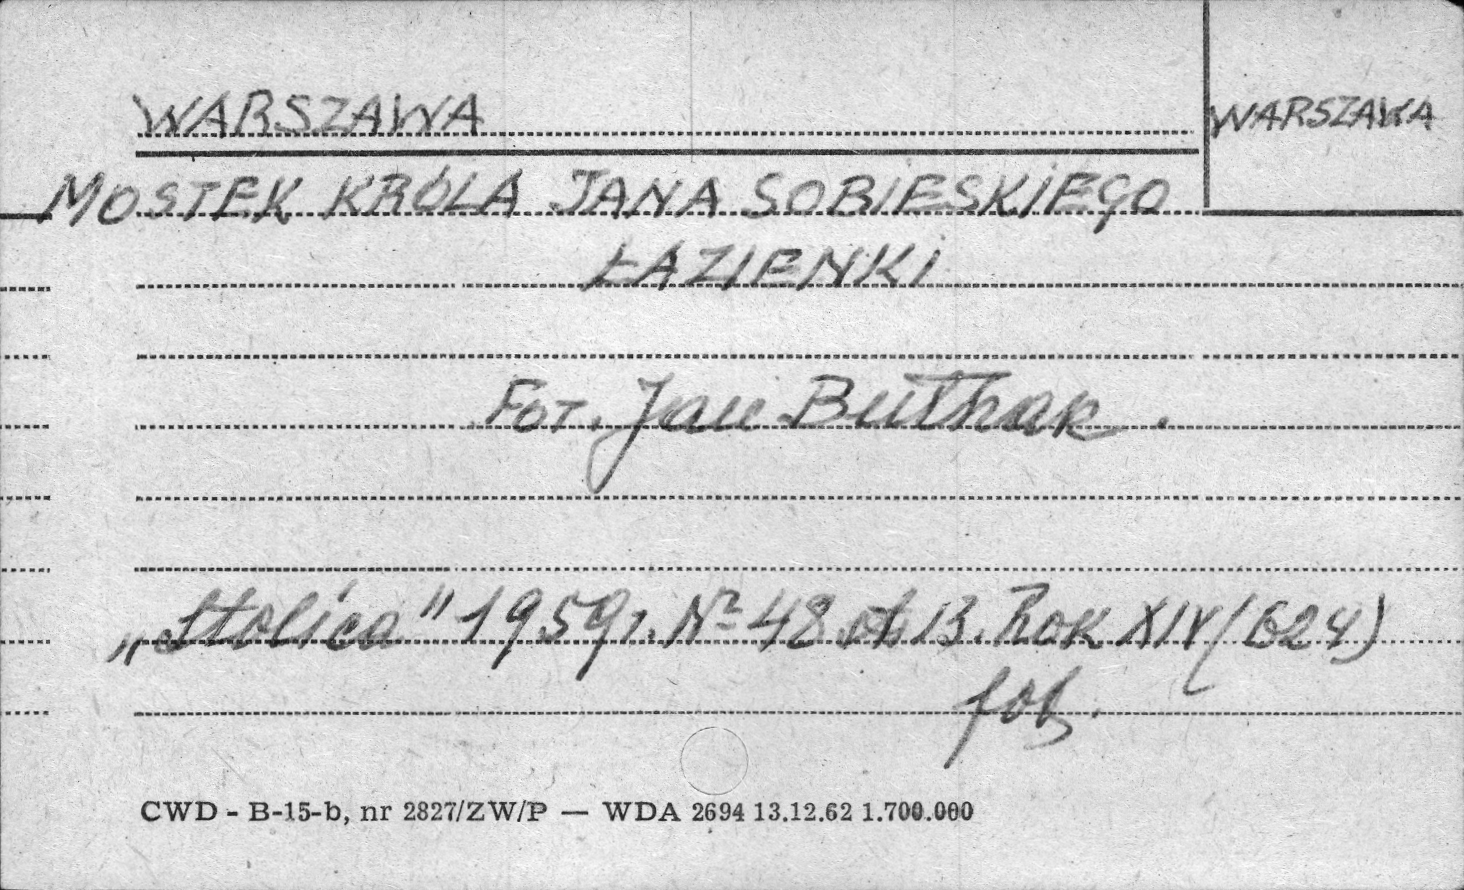 WARSZAWA
WARSZAWA
MOSTEK KRÓLA JANA SOBIESKIEGO
ŁAZIENKI
FOT. Jan Buthak.
„Stolica" 1959 r. Nr 48 st 13. ROK XIV (624)
fot.
CWD - B-15-b, nr 2827/ZW/P — WDA 2694 13.12.62 1.700.000